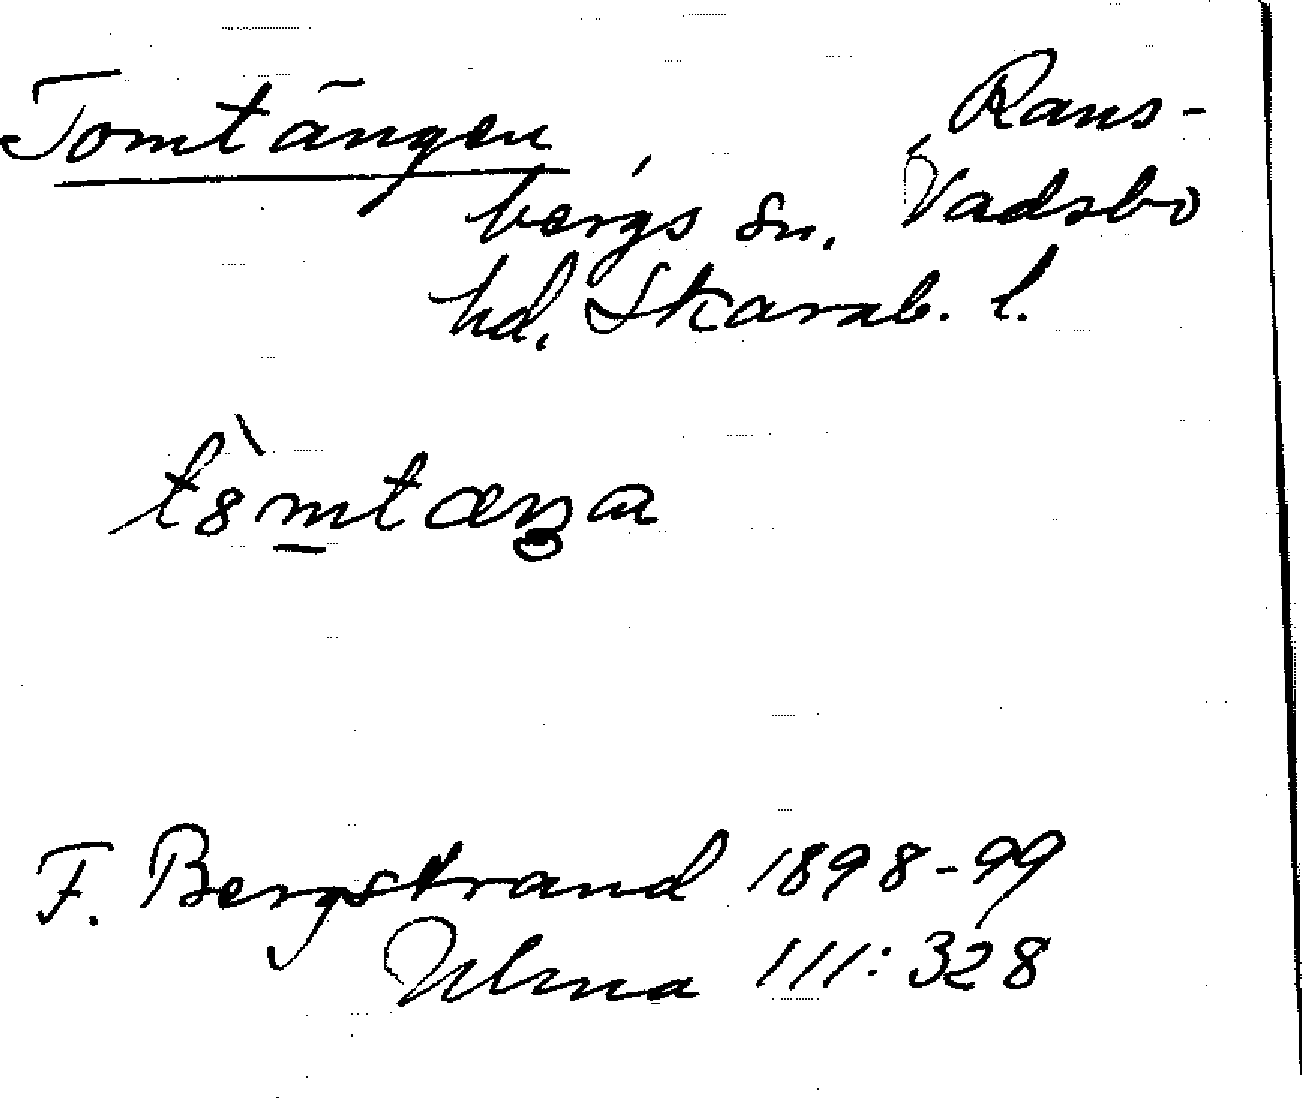 Tomtängen, Rans-
bergs sn. Vadsbo
hd. Skarab. l.
F. Bergstrand 1898-99
Ulma 111:328